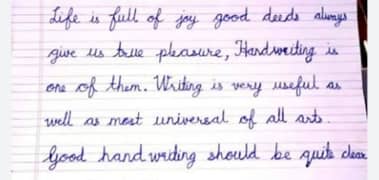 Life is full of joy good deeds always
give us true pleasure, Handwriting is
one of them. Writing is very useful as
well as most universal of all arts.
Good hand writing should be quite clear